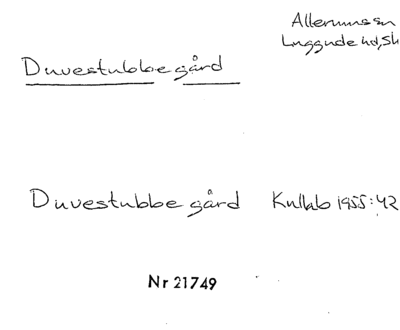 Allerums sn
Luggude hd, Sk
Duvestubbe gård
Duvestubbe gård Kullab 1955:42
Nr 21749